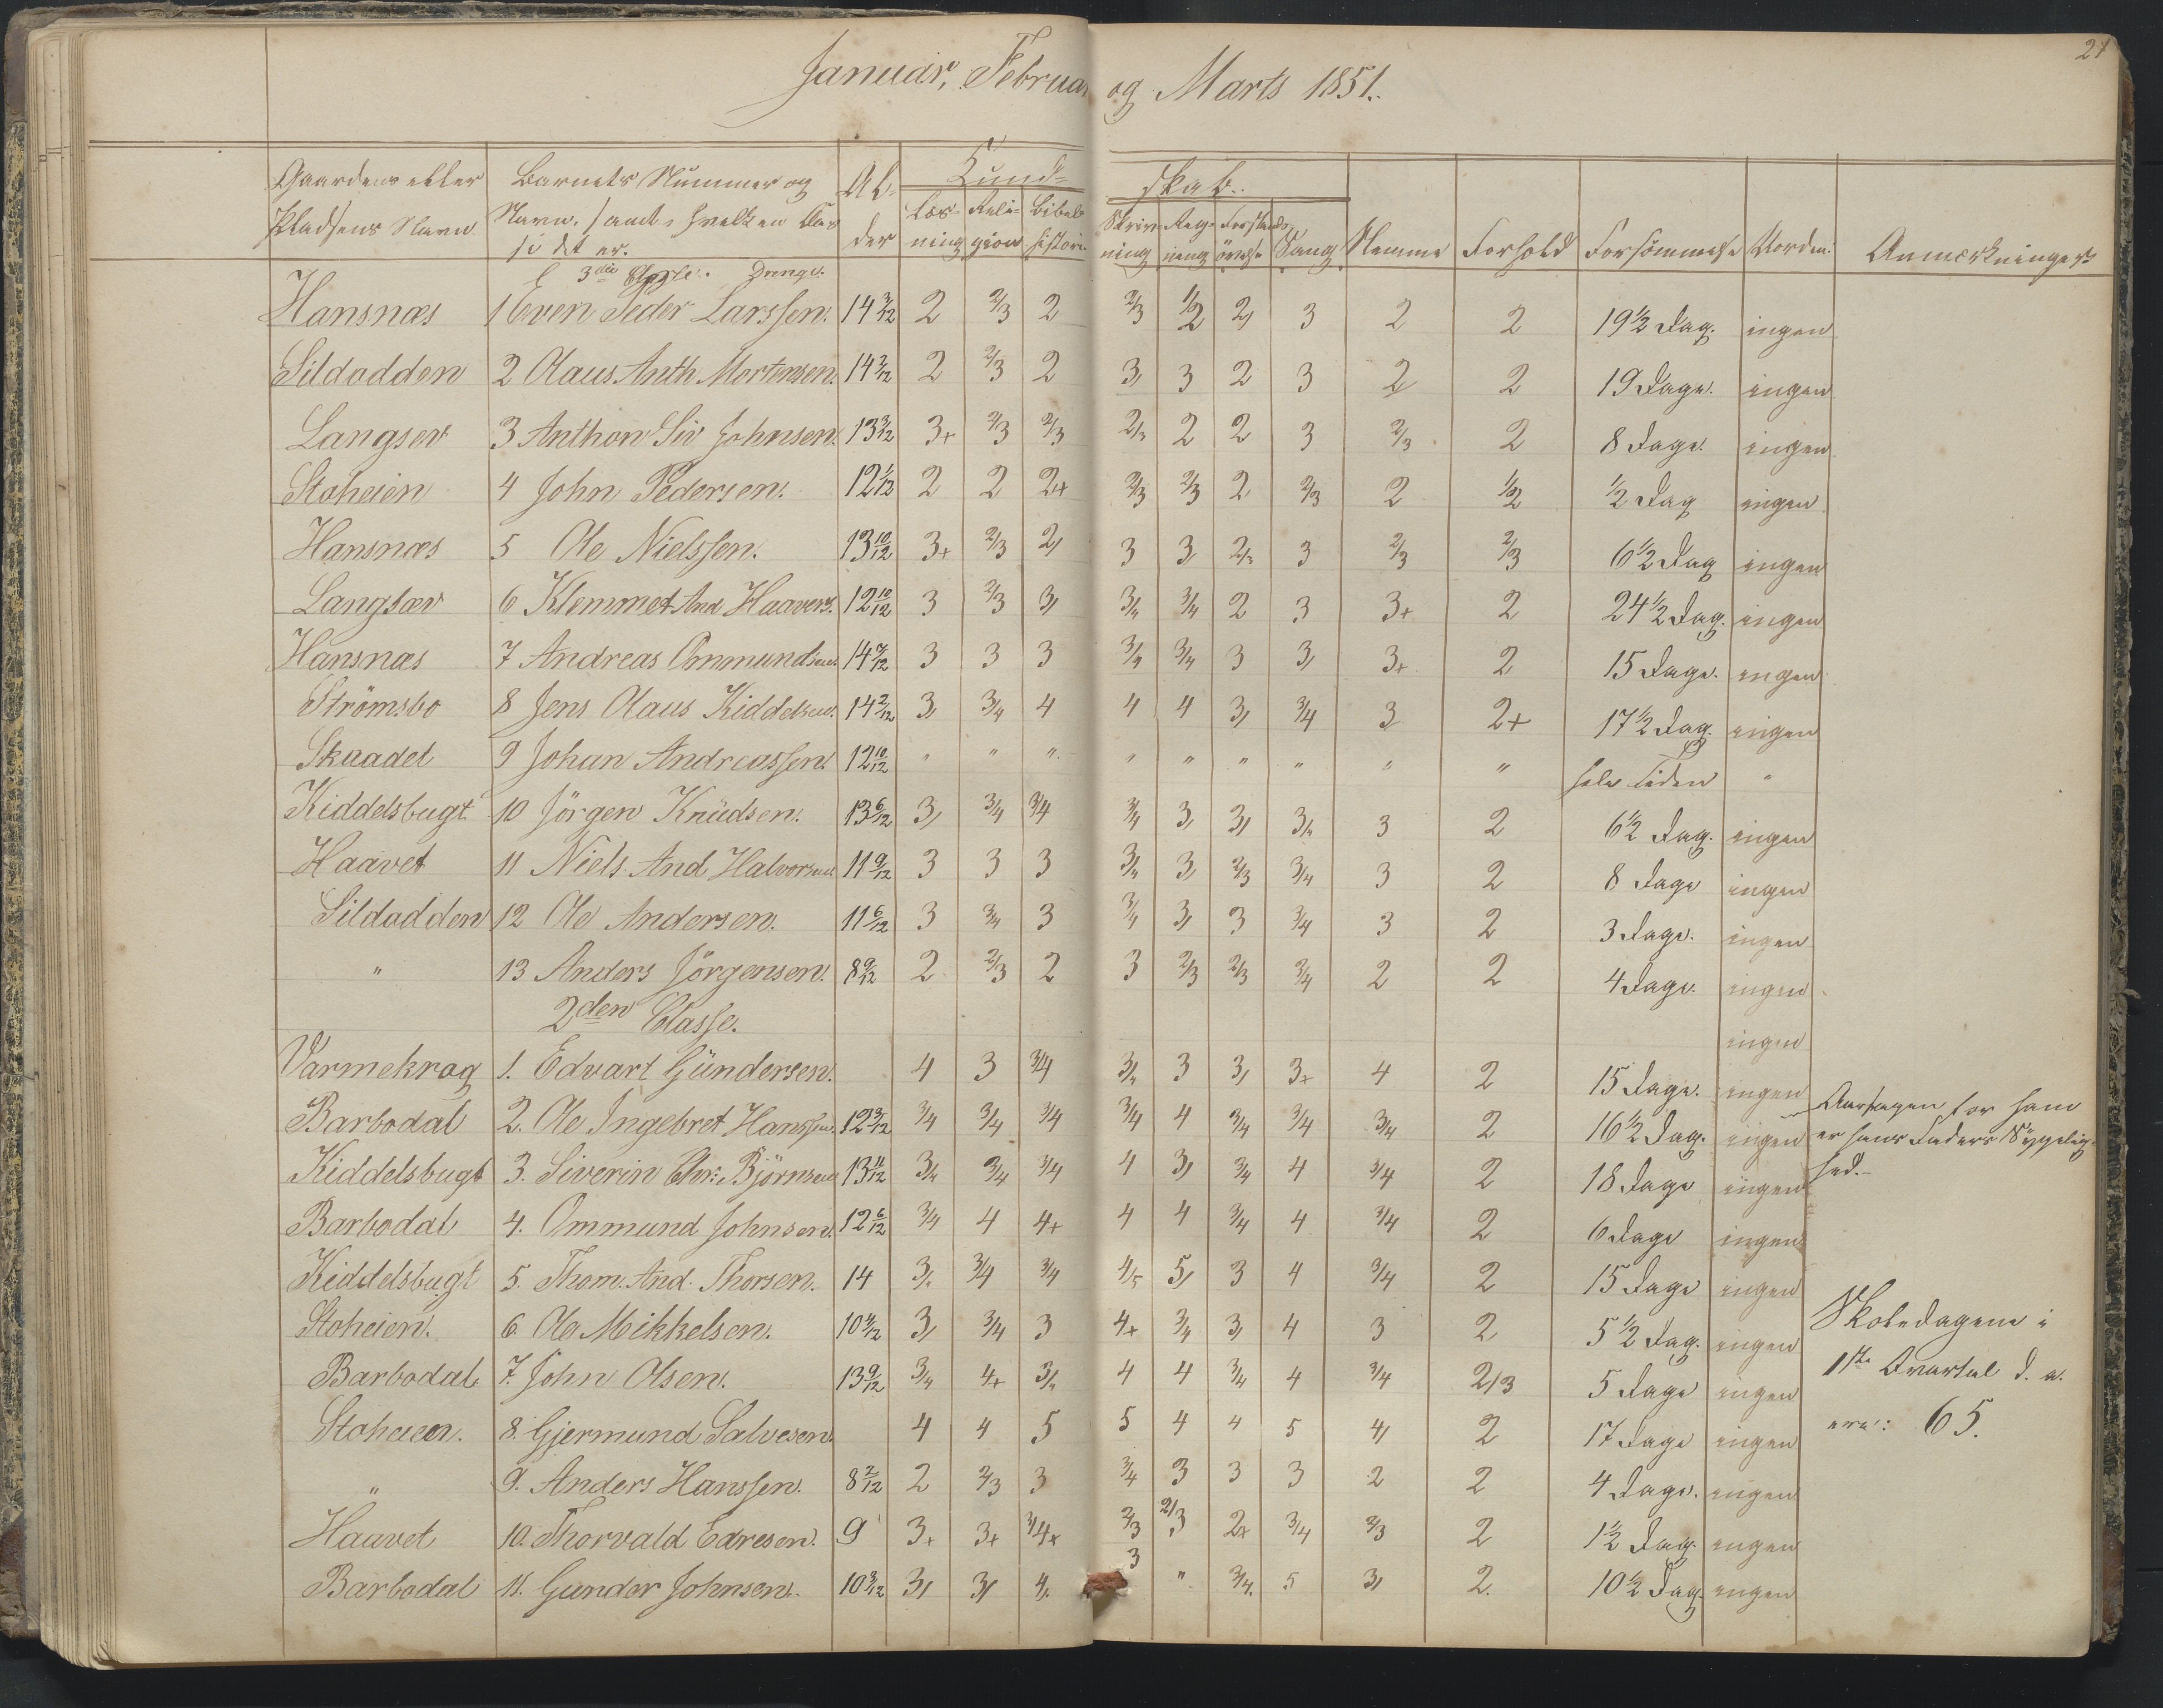 21
Januar, Februar og Marts 1851.
Gaardens eller Pladsens Navn
Barnets Nummer og Navn, samt hvilken Classe det er.
Alder
Kundskab.
Læsning Religion Bibelhistorie Skrivning Regning Forstandsøvelse Sang
Nemme Forhold Forsömmelse Vorden: Anmærkninger
3die Classe. Drenge.
Hansnæs 1 Even Peder Larssen. 14 3/12 2 2/3 2 2/3 1/2 2/ 3 2 2 19 1/2 Dag. ingen
Sildodden 2 Olaus Anth. Mortensen. 14 2/12 2 2/3 2 3/ 3 2 3 2 2 19 Dage. ingen
Langsev 3 Anthon Siv Johnsen. 13 3/12 3+ 2/3 2/3 2/3 2 2 3 2/3 2 8 Dage. ingen
Stoheien 4 John Pedersen. 12 1/12 2 2 2+ 2/3 2/3 2 2/3 2 1/2 1/2 Dag ingen
Hansnæs 5 Ole Nielssen. 13 10/12 3+ 2/3 2/ 3 3/ 2/3 3 2/3 2/3 6 1/2 Dag ingen
Langsæv 6 Klemmet And Haavors. 12 10/12 3 2/3 3/ 3/4 3/4 2 3 3+ 2 24 1/2 Dag. ingen
Hansnæs 7 Andreas Ommundsen. 14 7/12 3 3 3 3/4 3/4 3 3/ 3+ 2 15 Dage. ingen
Strömsbo 8 Jens Olaus Kiddelsen. 14 2/12 3/ 3/4 4 4 4 3/ 3/4 3 2+ 17 1/2 Dag. ingen
Skaadet 9 Johan Andreassen. 12 10/12 " " " " " " " " " hele Tiden "
Kiddelsbugt 10 Jörgen Knüdsen. 13 6/12 3/ 3/4 3/4 3/4 3/ 3/ 3/4 3 2 6 1/2 Dag. ingen
Haavet 11 Niels And Halvorsen 11 9/12 3 3 3 3/4 3/ 2/3 3/4 3 2 8 Dage ingen
Sildodden 12 Ole Andersen. 11 6/12 3 3/4 3 3/4 3/ 3 3/4 3 2 3 Dage. ingen
" 13 Anders Jörgensen. 8 9/12 2 2/3 2 3 2/3 2/3 3/4 2 2 4 Dage. ingen
2den Classe.
ingen
Varmekrog 1. Edvart Gündersen. 4 3 3/4 3/4 3 3/ 3+ 4 2 15 Dage. ingen
Barbodal 2. Ole Ingebret Hanssen. 12 3/12 3/4 3/4 3/4 3/4 4 3/4 3/4 3/4 2 16 1/2 Dag. ingen
Aarsagen for ham
er hans Faders Sygelig-
hed.
Kiddelsbugt 3. Siverin Chr: Björnsen 13 11/12 3/4 3/4 3/4 4 3/ 3/4 4 3/4 2 18 Dage ingen
Barbodal 4. Ommund Johnsen. 12 6/12 3/4 4 4+ 4 4 3/4 4 3/4 2 6 Dage ingen
Kiddelsbugt 5. Thom. And. Thorsen. 14 3/4 3/4 3/4 4/5 5/ 3 4 3/4 2 15 Dage ingen
Stoheien. 6. Ole Mikkelsen. 10 4/12 3/ 3/4 3 4+ 3/4 3/ 4 3 2 5 1/2 Dag. ingen
Barbodal. 7. John Olsen. 13 9/12 3/4 4+ 3/4 4 4 3/4 4 3/4 2/3 5 Dage ingen
Stoheien. 8. Gjermund Salvesen. 4 4 5 5 4 4 5 4/ 2 17 Dage ingen
Skoledagene i
1ste Qvartal d. a.
ere: 65.
" 9. Anders Hanssen. 8 2/12 2 2/3 3 3/4 3 3 3 2 2 4 Dage. ingen
Haavet 10. Thorvald Edvesen. 9 3+ 3+ 3/4+ 2/3 2/3 2+ 3/4 2/3 2 1 1/2 Dag. ingen
Barbodal 11. Gunder Johnsen. 10 3/12 3/ 3/ 4. 3 " 3/4. 5 3/ 2. 10 1/2 Dag. ingen